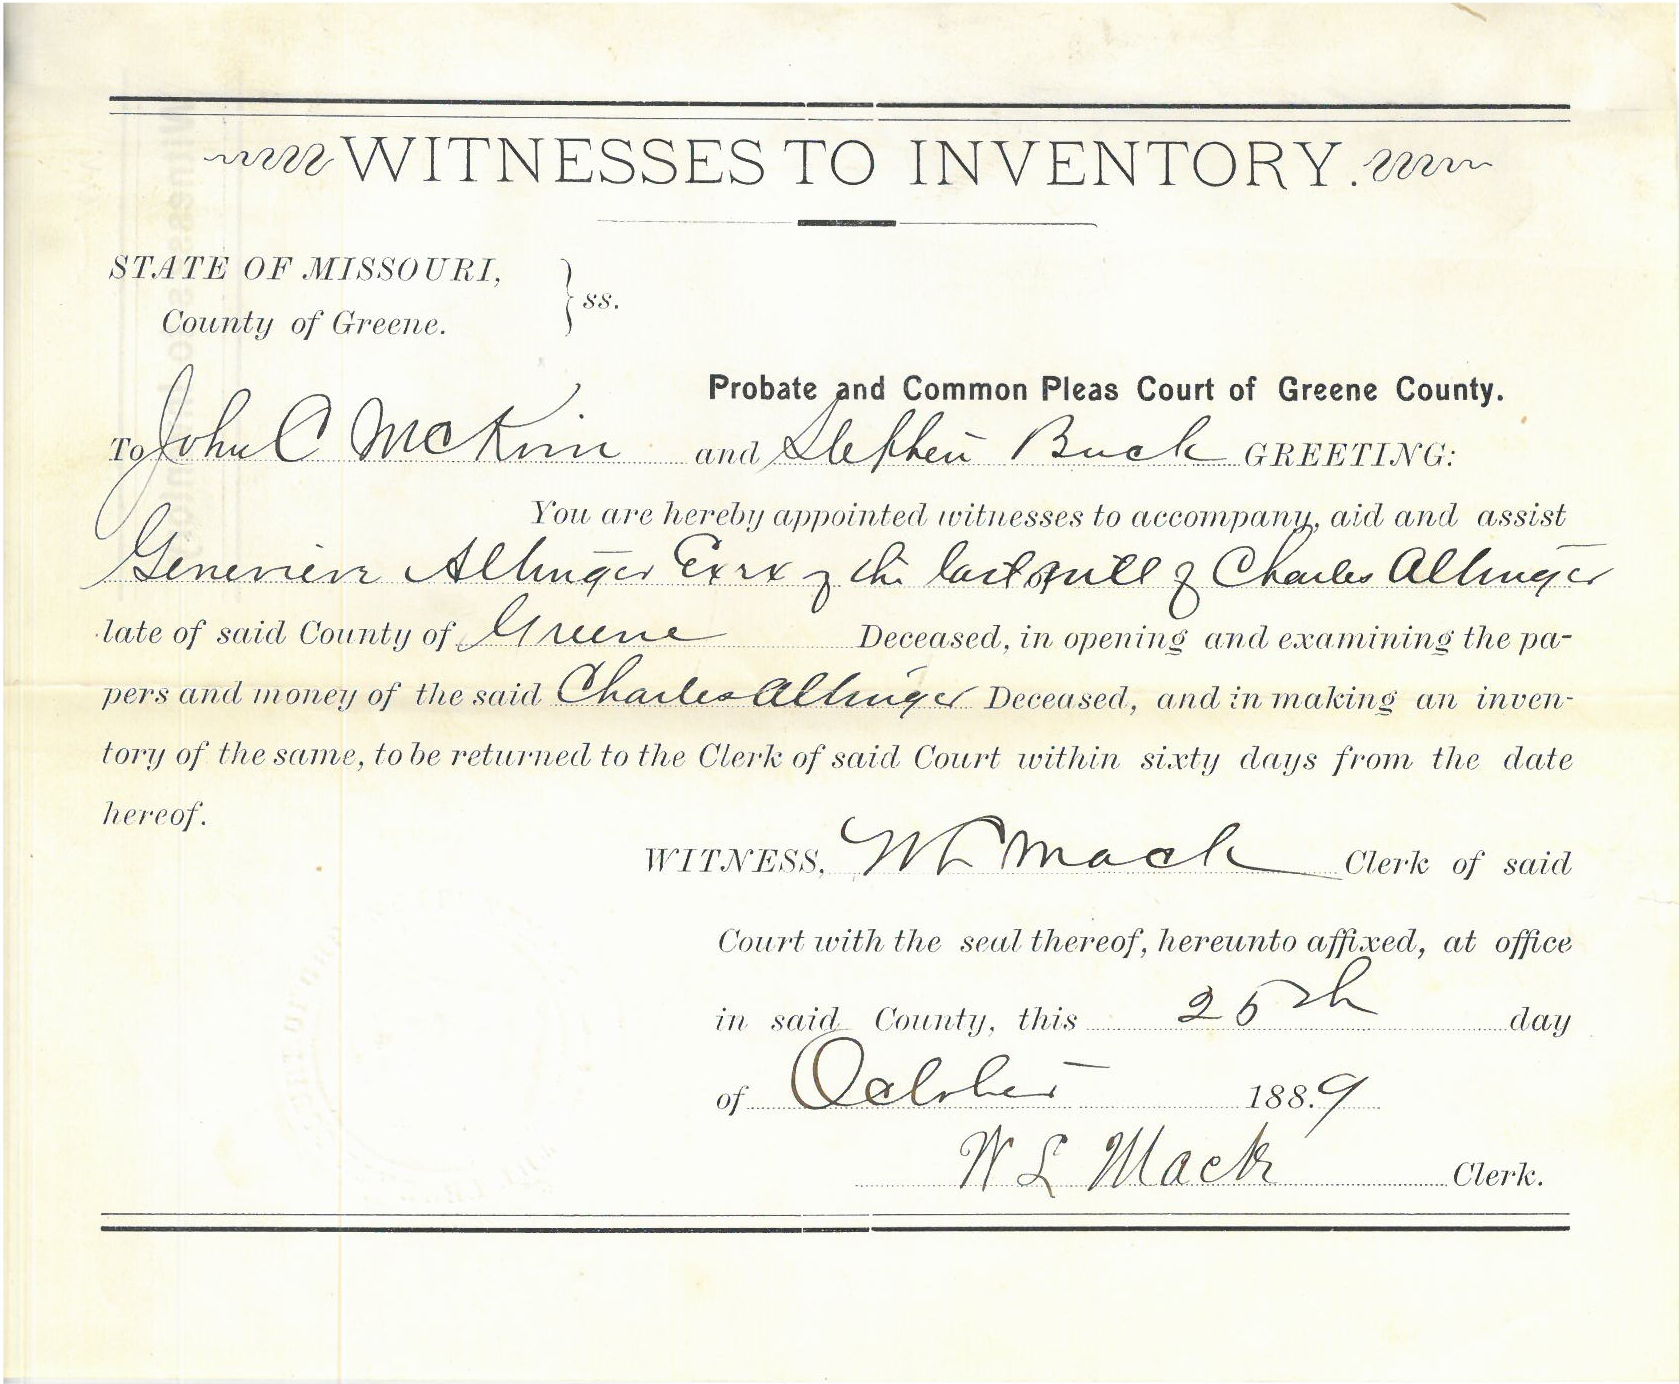 WITNESSES TO INVENTORY.
STATE OF MISSOURI,
County of Greene. } ss.
Probate and Common Pleas Court of Greene County.
To John C McKinn and Stephen Buck GREETING:
You are hereby appointed witnesses to accompany, aid and assist
Genevieve Altinger Exrx of the last will of Charles Altinger
late of said County of Greene Deceased, in opening and examining the pa-
pers and money of the said Charles Altinger Deceased, and in making an inven-
tory of the same, to be returned to the Clerk of said Court within sixty days from the date
hereof.
WITNESS, W L Mack Clerk of said
Court with the seal thereof, hereunto affixed, at office
in said County, this 25th day
of October 1889
W L Mack Clerk.